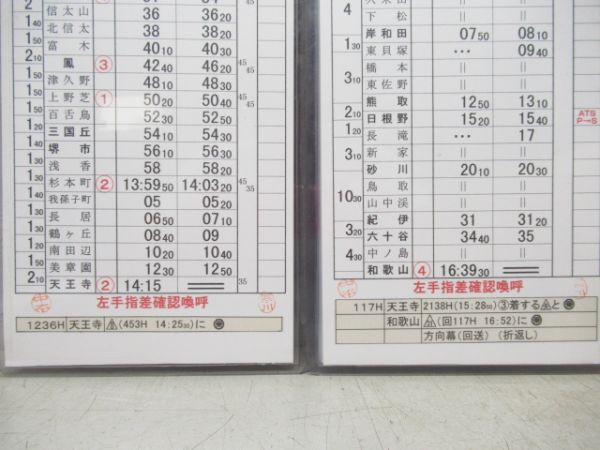 信太山 36 36 20
北信太 38 38
富木 40 10 40
2 10 鳳 ③ 42 40 46 20 45 45
1 50 津久野 48 10 48 30
1 50 上野芝 ① 50 20 50 20
百舌鳥 52 30 52 50
三国丘 54 10 54 30
堺市 56 10 56 30
浅香 58 58 20
杉本町 ② 13:59 50 14:03 20 45 35
我孫子町 05 05 20
長居 06 50 07 10
鶴ヶ丘 08 40 09
南田辺 10 20 10 40
美章園 12 30 12 50
2 10 天王寺 ② 14:15 35
左手指差確認喚呼
1236H 天王寺 (453H 14:25 30)に
4 下松 〃 〃
岸和田 07 50 08 10
1 30 東貝塚 ・・・ 09 40
橋本 〃 〃
3 10 東佐野 〃 〃
熊取 12 50 13 10
日根野 15 20 15 40
ATS P→S
長滝 ・・・ 17
3 10 新家 〃 〃
砂川 20 10 20 30
鳥取 〃 〃
10 30 山中渓 〃 〃
紀伊 31 31 20
3 10 六十谷 34 40 35
中ノ島 〃 〃
4 30 和歌山 ④ 16:39 30
左手指差確認喚呼
117H 天王寺 2138H(15:28 00)③着する と
和歌山 (回117H 16:52)に
方向幕(回送) (折返し)